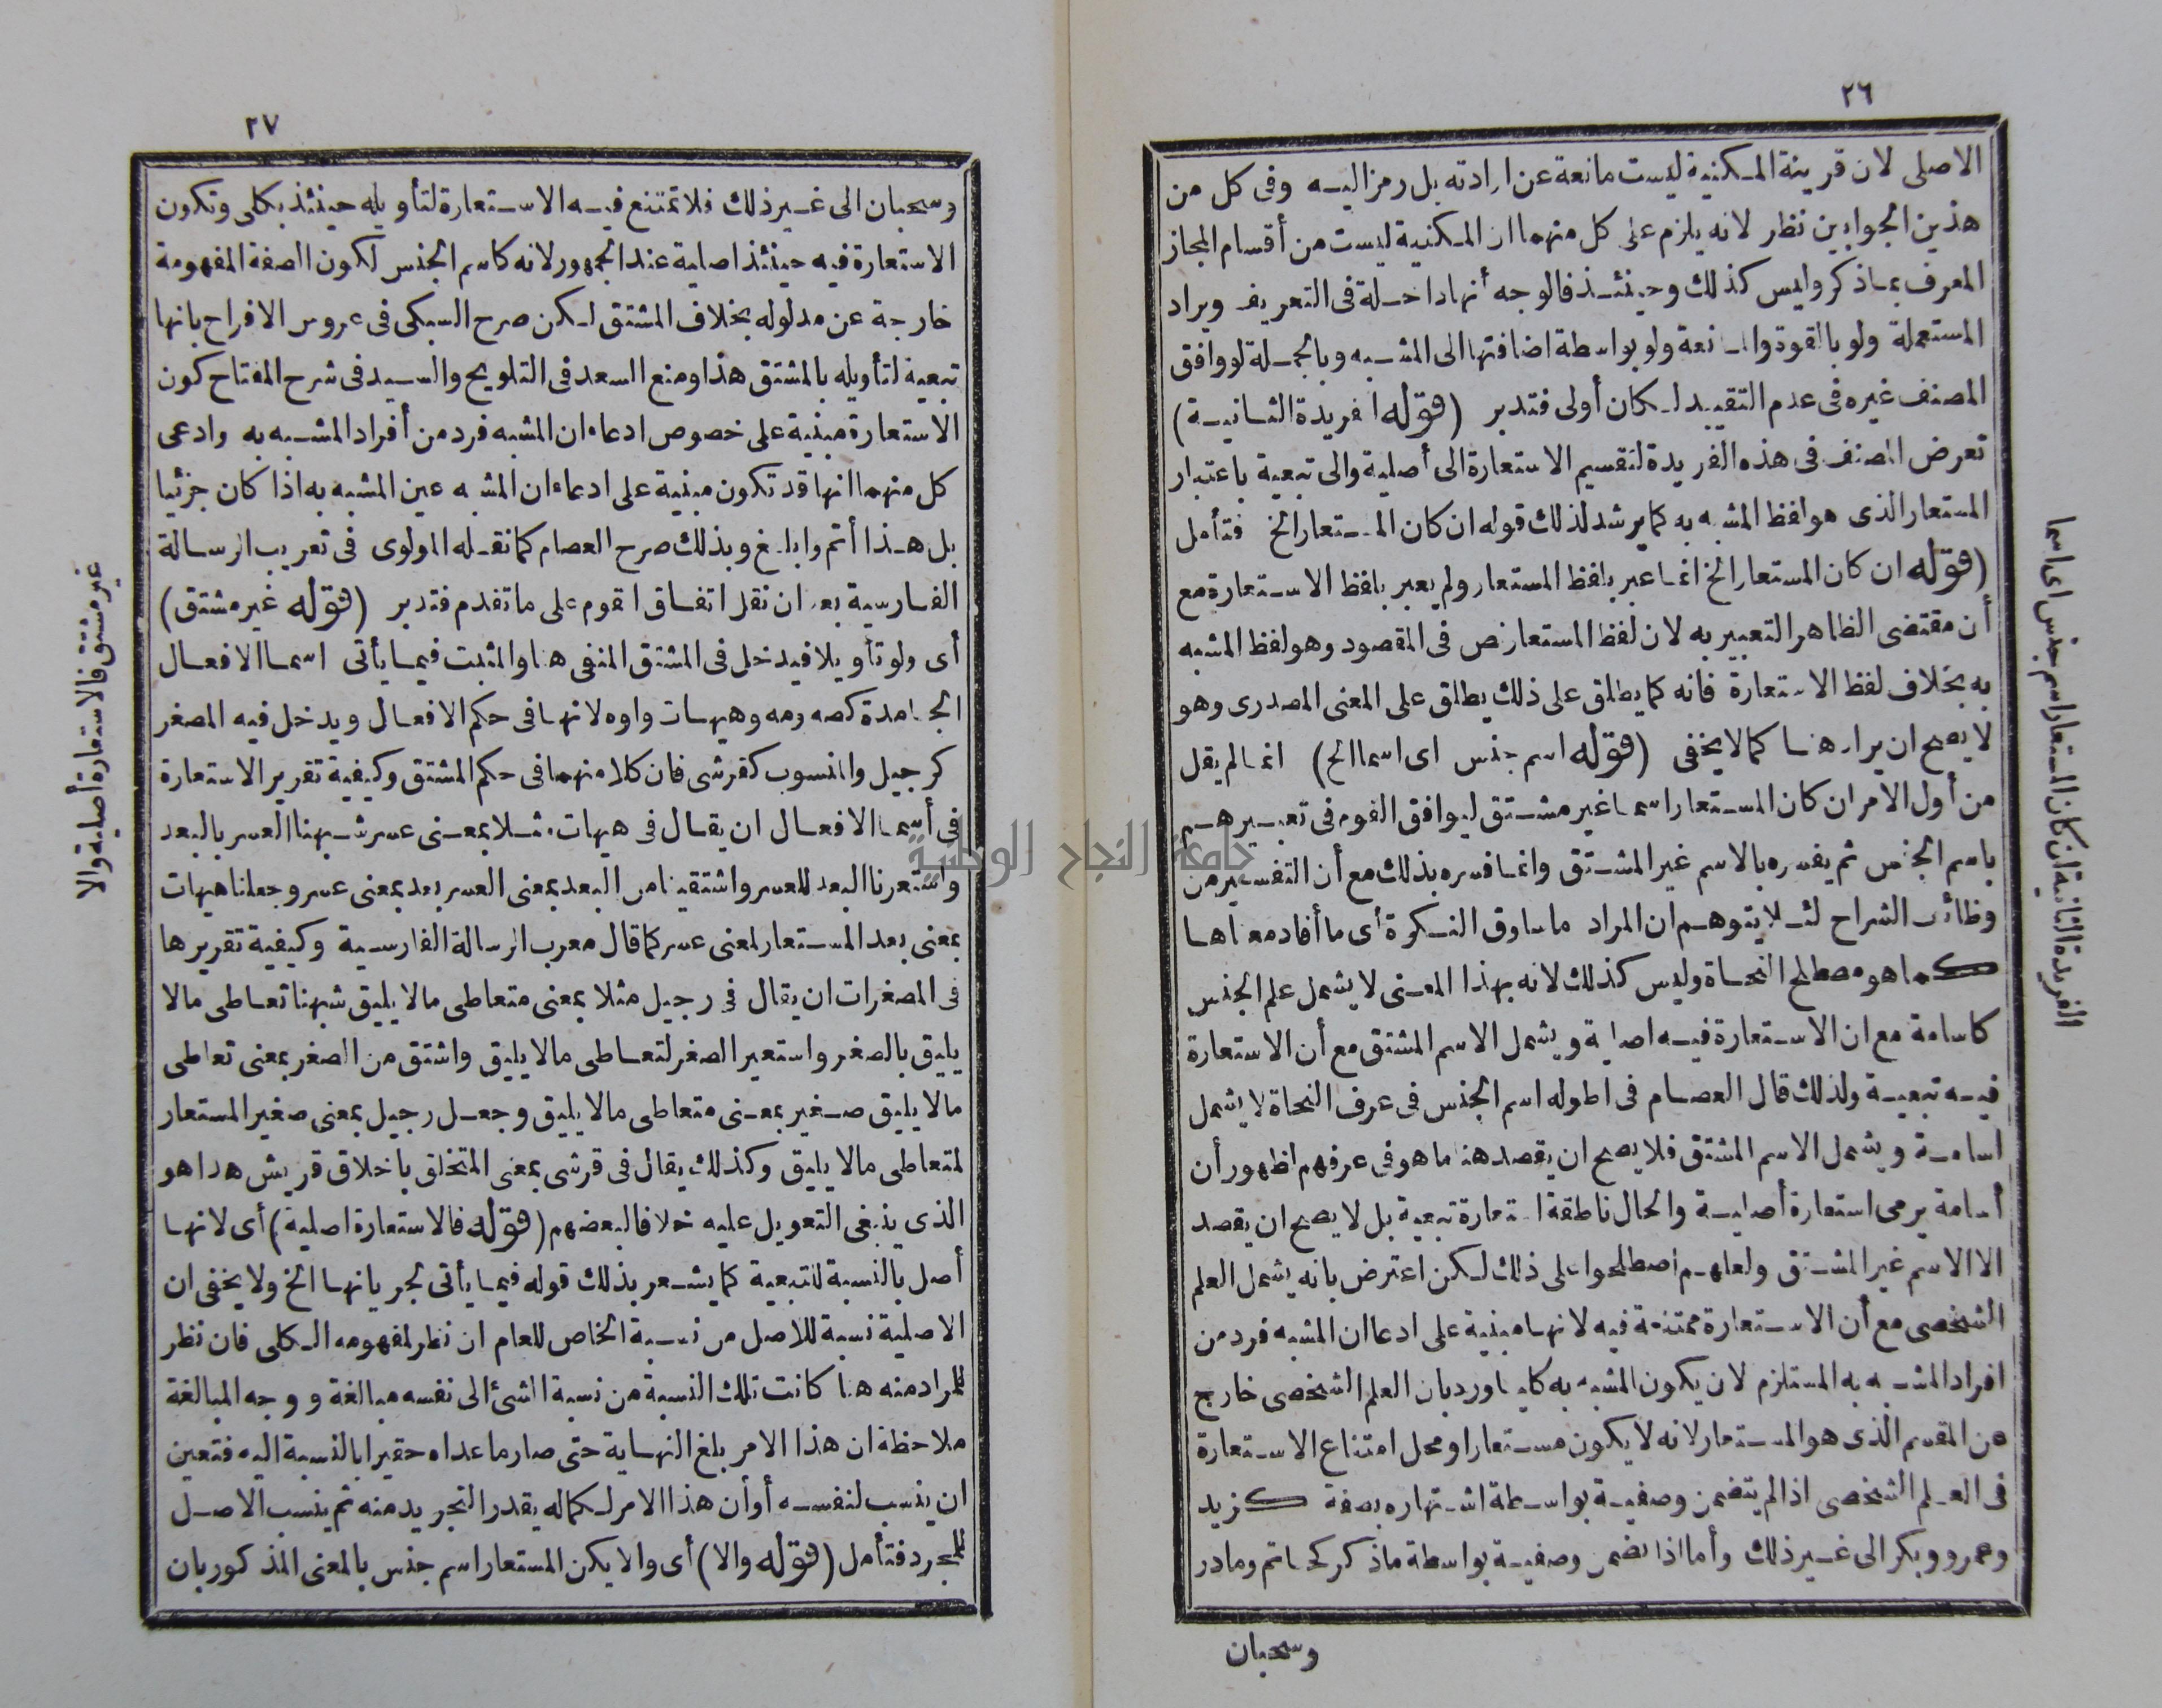 ٢٦
الاصلى لان قرينة المكنية ليست مانعة عن ارادته بل رمز اليه وفى كل من
هذين الجوابين نظر لانه يلزم على كل منهما ان المكنية ليست من أقسام المجاز
المعرف بما ذكر وليس كذلك وحينئذ فالوجه أنها داخلة فى التعريف ويراد
المستعملة ولو بالقوة والمانعة ولو بواسطة اضافتها الى المشبه وبالجملة لو وافق
المصنف غيره فى عدم التقييد لكان أولى فتدبر (قوله الفريدة الثانية)
تعرض المصنف فى هذه الفريدة لتقسيم الاستعارة الى أصلية والى تبعية باعتبار
المستعار الذى هو لفظ المشبه به كما يرشد لذلك قوله ان كان المستعار الخ فتأمل
(قوله ان كان المستعار الخ انما عبر بلفظ المستعار ولم يعبر بلفظ الاستعارة مع
أن مقتضى الظاهر التعبير به لان لفظ المستعار نص فى المقصود وهو لفظ المشبه
به بخلاف لفظ الاستعارة فانه كما يطلق على ذلك يطلق على المعنى المصدرى وهو
لا يصح ان يراد هنا كما لا يخفى (قوله اسم جنس اى اسما الخ) انما لم يقل
من أول الامر ان كان المستعار اسما غير مشتق ليوافق القوم فى تعبيرهم
باسم الجنس ثم يفسره بالاسم غير المشتق وانما فسره بذلك مع أن التفسير من
وظائف الشراح لئلا يتوهم ان المراد ما ساوق النكرة أى ما أفاد معناها
كما هو مصطلح النحاة وليس كذلك لانه بهذا المعنى لا يشمل علم الجنس
كاسامة مع ان الاستعارة فيه اصلية ويشمل الاسم المشتق مع أن الاستعارة
فيه تبعية ولذلك قال العصام فى اطوله اسم الجنس فى عرف النحاة لا يشمل
اسامة ويشمل الاسم المشتق فلا يصح ان يقصد هنا ما هو فى عرفهم لظهور أن
أسامة يرمى استعارة أصلية والحال ناطقة استعارة تبعية بل لا يصح ان يقصد
الا الاسم غير المشتق ولعلهم اصطلحوا على ذلك لكن اعترض بانه يشمل العلم
الشخصى مع أن الاستعارة ممتنعة فيه لانها مبنية على ادعا ان المشبه فرد من
افراد المشبه به المستلزم لان يكون المشبه به كليا ورد بان العلم الشخصى خارج
من المقسم الذى هو المستعار لانه لا يكون مستعارا ومحل امتناع الاستعارة
فى العلم الشخصى اذا لم يتضمن وصفية بواسطة اشتهاره بصفة كزيد
وعمرو وبكر الى غير ذلك وأما اذا تضمن وصفية بواسطة ما ذكر كحاتم ومادر
وسحبان
الفريدة الثانية ان كان المستعار اسم جنس اى اسما
٢٧
وسحبان الى غير ذلك فلا تمتنع فيه الاستعارة لتأويله حينئذ بكلى وتكون
الاستعارة فيه حينئذ اصلية عند الجمهور لانه كاسم الجنس لكون الصفة المفهومة
خارجة عن مدلوله بخلاف المشتق لكن صرح السبكى فى عروس الافراح بانها
تبعية لتأويله بالمشتق هذا ومنع السعد فى التلويح والسيد فى شرح المفتاح كون
الاستعارة مبنية على خصوص ادعاء ان المشبه فرد من أفراد المشبه به وادعى
كل منهما انها قد تكون مبنية على ادعاء ان المشبه عين المشبه به اذا كان جزئيا
بل هذا أتم وابلغ وبذلك صرح العصام كما نقله المولوى فى تعريب الرسالة
الفارسية بعد ان نقل اتفاق القوم على ما تقدم فتدبر (قوله غير مشتق)
أى ولو تأويلا فيدخل فى المشتق المنفى هنا والمثبت فيما يأتى اسما الافعال
الجامدة كصه ومه وهيهات واوه لانها فى حكم الافعال ويدخل فيه المصغر
كرجيل والمنسوب كقرشى فان كلا منهما فى حكم المشتق وكيفية تقرير الاستعارة
فى أسما الافعال ان يقال فى هيهات مثلا بمعنى عسر شبهنا العسر بالبعد
واستعرنا البعد للعسر واشتقينا من البعد بمعنى العسر بعد بمعنى عسر وجعلنا هيهات
بمعنى بعد المستعار لمعنى عسر كما قال معرب الرسالة الفارسية وكيفية تقريرها
فى المصغرات ان يقال فى رجيل مثلا بمعنى متعاطى مالا يليق شبهنا تعاطى مالا
يليق بالصغر واستعير الصغر لتعاطى مالا يليق واشتق من الصغر بمعنى تعاطى
مالا يليق صغير بمعنى متعاطى مالا يليق وجعل رجيل بمعنى صغير المستعار
لمتعاطى مالا يليق وكذلك يقال فى قرشى بمعنى المتخلق باخلاق قريش هذا هو
الذى ينبغى التعويل عليه خلافا لبعضهم (قوله فالاستعارة اصلية) أى لانها
أصل بالنسبة للتبعية كما يشعر بذلك قوله فيما يأتى لجريانها الخ ولا يخفى ان
الاصلية نسبة للاصل من نسبة الخاص للعام ان نظر لمفهومه الكلى فان نظر
للمراد منه هنا كانت تلك النسبة من نسبة الشئ الى نفسه مبالغة ووجه المبالغة
ملاحظة ان هذا الامر بلغ النهاية حتى صار ما عداه حقيرا بالنسبة اليه فتعين
ان ينسب لنفسه أو أن هذا الامر لكماله يقدر التجريد منه ثم ينسب الاصل
للمجرد فتأمل (قوله والا) أى والا يكن المستعار اسم جنس بالمعنى المذكور بان
غير مشتق فالاستعارة أصلية والا
جامعة النجاح الوطنية